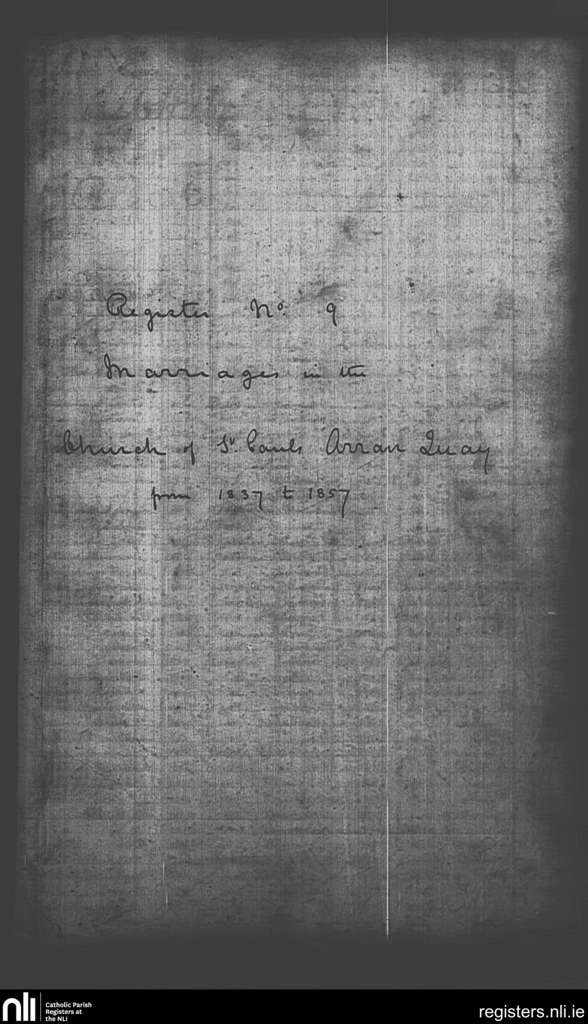 Register No. 9
Marriages in the
Church of St. Pauls Arran Quay
from 1837 to 1857
nli
Catholic Parish
Registers at
the NLI
registers.nli.ie